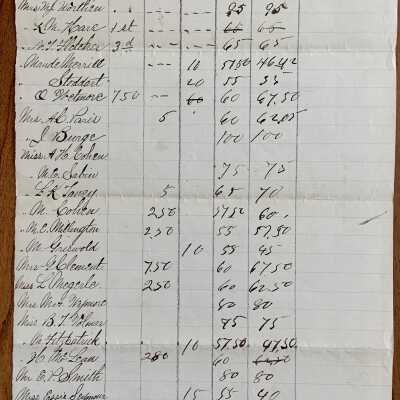 Miss M J Northen .. -- --- 85 85
L M Hare 1st -- --- 65 65
3rd -- --- 65 65
Maude Merrill 10 57.50 46.42
Stoddart 20 55 35
O Wetmore 7 50 -- 60 60 67.50
Mrs A C Paris 5 60 62.05
J Burge 100 100
Miss A H Cohen
M. E. Sabin 75 75
L K Tansy 5 65 70
M. Cohen 2.50 57.50 60.
M. E. Millington 2.50 55 57.50
M. Griswold 10 55 45
Mrs G Clement 7.50 60 67.50
Miss L 2.50 60 62.50
Mrs M A 80 80
Miss B. T. Wolmer 75 75
M Fitzpatrick 10 57.50 47.50
Mc Lean 2.80 60
Mr E. P. Smith 80 80
Miss Seymour 15 55 40